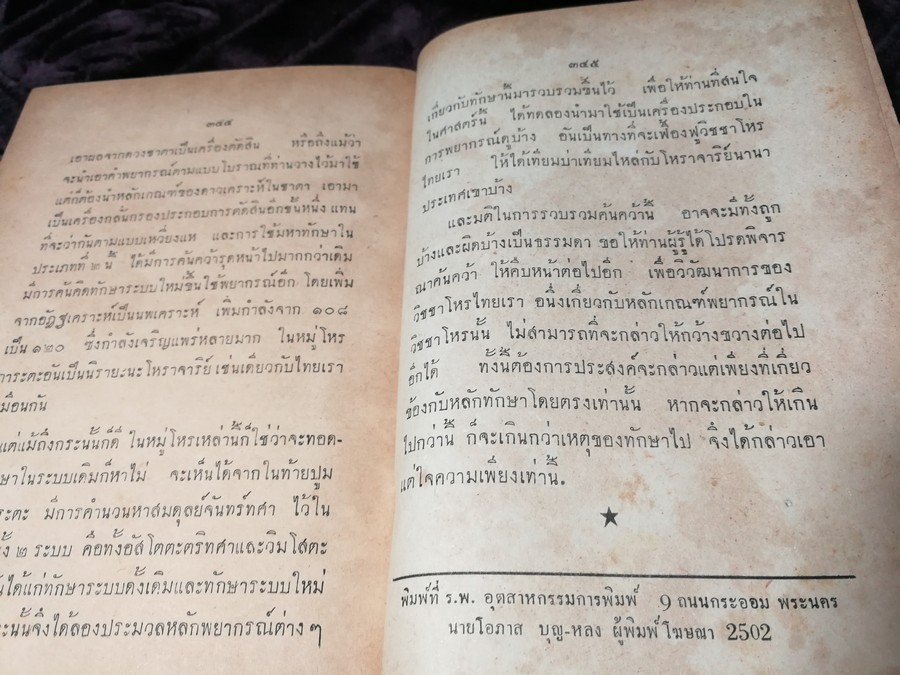 ๓๔๔
เอาผลจากดวงชาตาเป็นเครื่องตัดสิน หรือถึงแม้ว่า
จะนำเอาคำพยากรณ์ตามแบบโบราณที่ท่านวางไว้มาใช้
แต่ก็ต้องนำหลักเกณฑ์ของดาวเคราะห์ในชาตา เอามา
เป็นเครื่องกลั่นกรองประกอบการตัดสินอีกชั้นหนึ่ง แทน
ที่จะว่ากันตามแบบเหวี่ยงแห และการใช้มหาทักษาใน
ประเภทที่ ๒ นี้ ได้มีการค้นคว้ารุดหน้าไปมากกว่าเดิม
มีการคันคิดทักษาระบบใหม่ขึ้นใช้พยากรณ์อีก โดยเพิ่ม
จากอัฏฐเคราะห์เป็นนพเคราะห์ เพิ่มกำลังจาก ๑๐๘
เป็น ๑๒๐ ซึ่งกำลังเจริญแพร่หลายมาก ในหมู่โหร
ภาระตะอันเป็นนิรายะนะโหราจารีย์ เช่นเดียวกับไทยเรา
เหมือนกัน
แต่แม้ถึงกระนั้นก็ดี ในหมู่โหรเหล่านี้ก็ใช่ว่าจะทอด-
ษาในระบบเดิมก็หาไม่ จะเห็นได้จากในท้ายปูม
ระตะ มีการคำนวนหาสมดุลย์จันทร์ทศา ไว้ใน
ทั้ง ๒ ระบบ คือทั้งอัสโตตะตริทศาและวิมโสตะ
ได้แก่ทักษาระบบดั้งเดิมและทักษาระบบใหม่
ะนั้นจึงได้ลองประมวลหลักพยากรณ์ต่าง ๆ
๓๔๕
เกี่ยวกับทักษานี้มารวบรวมขึ้นไว้ เพื่อให้ท่านที่สนใจ
ในศาสตร์นี้ ได้ทดลองนำมาใช้เป็นเครื่องประกอบใน
การพยากรณ์ดูบ้าง อันเป็นทางที่จะเฟื่องฟูวิชชาโหร
ไทยเรา ให้ได้เทียมบ่าเทียมไหล่กับโหราจารีย์นานา
ประเทศเขาบ้าง
และมติในการรวบรวมค้นคว้านี้ อาจจะมีทั้งถูก
บ้างและผิดบ้างเป็นธรรมดา ขอให้ท่านผู้รู้ได้โปรดพิจาร
ณาค้นคว้า ให้คืบหน้าต่อไปอีก เพื่อวิวัฒนาการของ
วิชชาโหรไทยเรา อนึ่งเกี่ยวกับหลักเกณฑ์พยากรณ์ใน
วิชชาโหรนั้น ไม่สามารถที่จะกล่าวให้กว้างขวางต่อไป
อีกได้ ทั้งนี้ต้องการประสงค์จะกล่าวแต่เพียงที่เกี่ยว
ข้องกับหลักทักษาโดยตรงเท่านั้น หากจะกล่าวให้เกิน
ไปกว่านี้ ก็จะเกินกว่าเหตุของทักษาไป จึงได้กล่าวเอา
แต่ใจความเพียงเท่านี้.
พิมพ์ที่ ร.พ. อุตสาหกรรมการพิมพ์ 9 ถนนกระออม พระนคร
นายโอภาส บุญ-หลง ผู้พิมพ์โฆษณา 2502